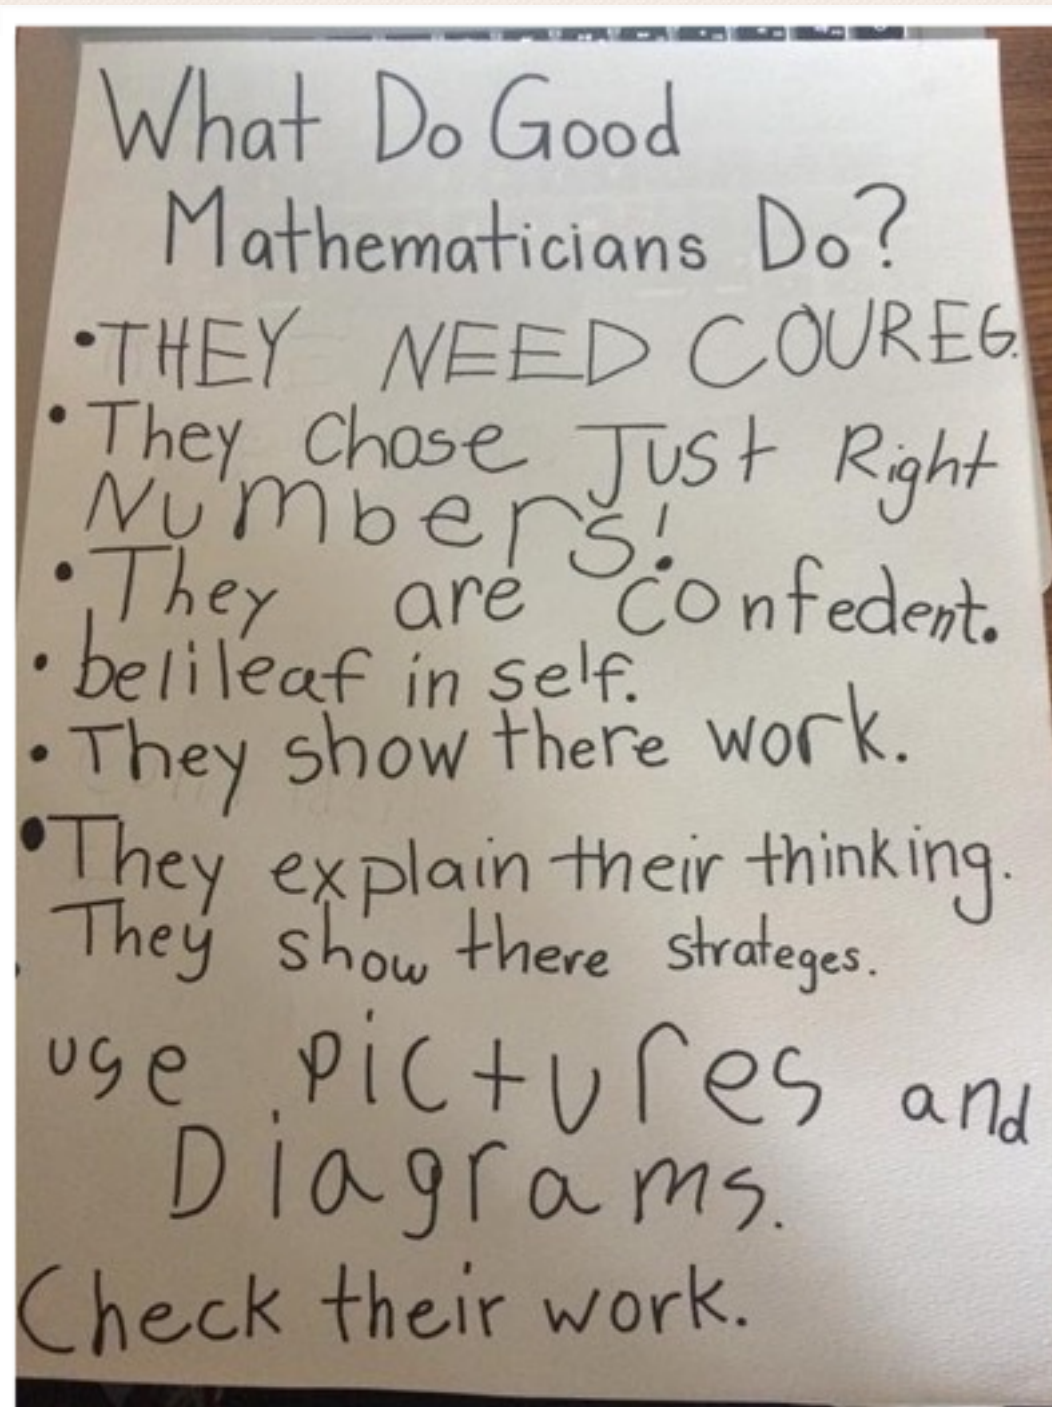 What Do Good
Mathematicians Do?
•THEY NEED COUREG.
•They chose Just Right
Numbers!
•They are confedent.
•belileaf in self.
•They show there work.
•They explain their thinking.
They show there strateges.
use pictures and
Diagrams.
Check their work.